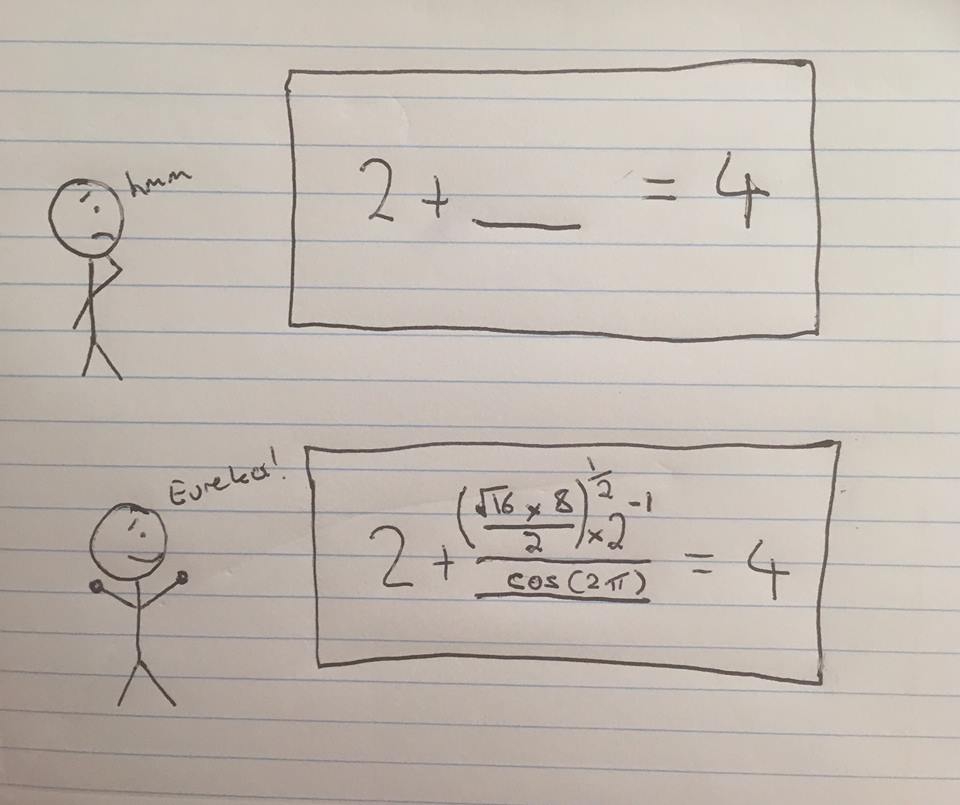 hmm
2 + ___ = 4
Eureka!
2 + ((√16 × 8)/2)^(1/2) × 2^-1 / cos(2π) = 4